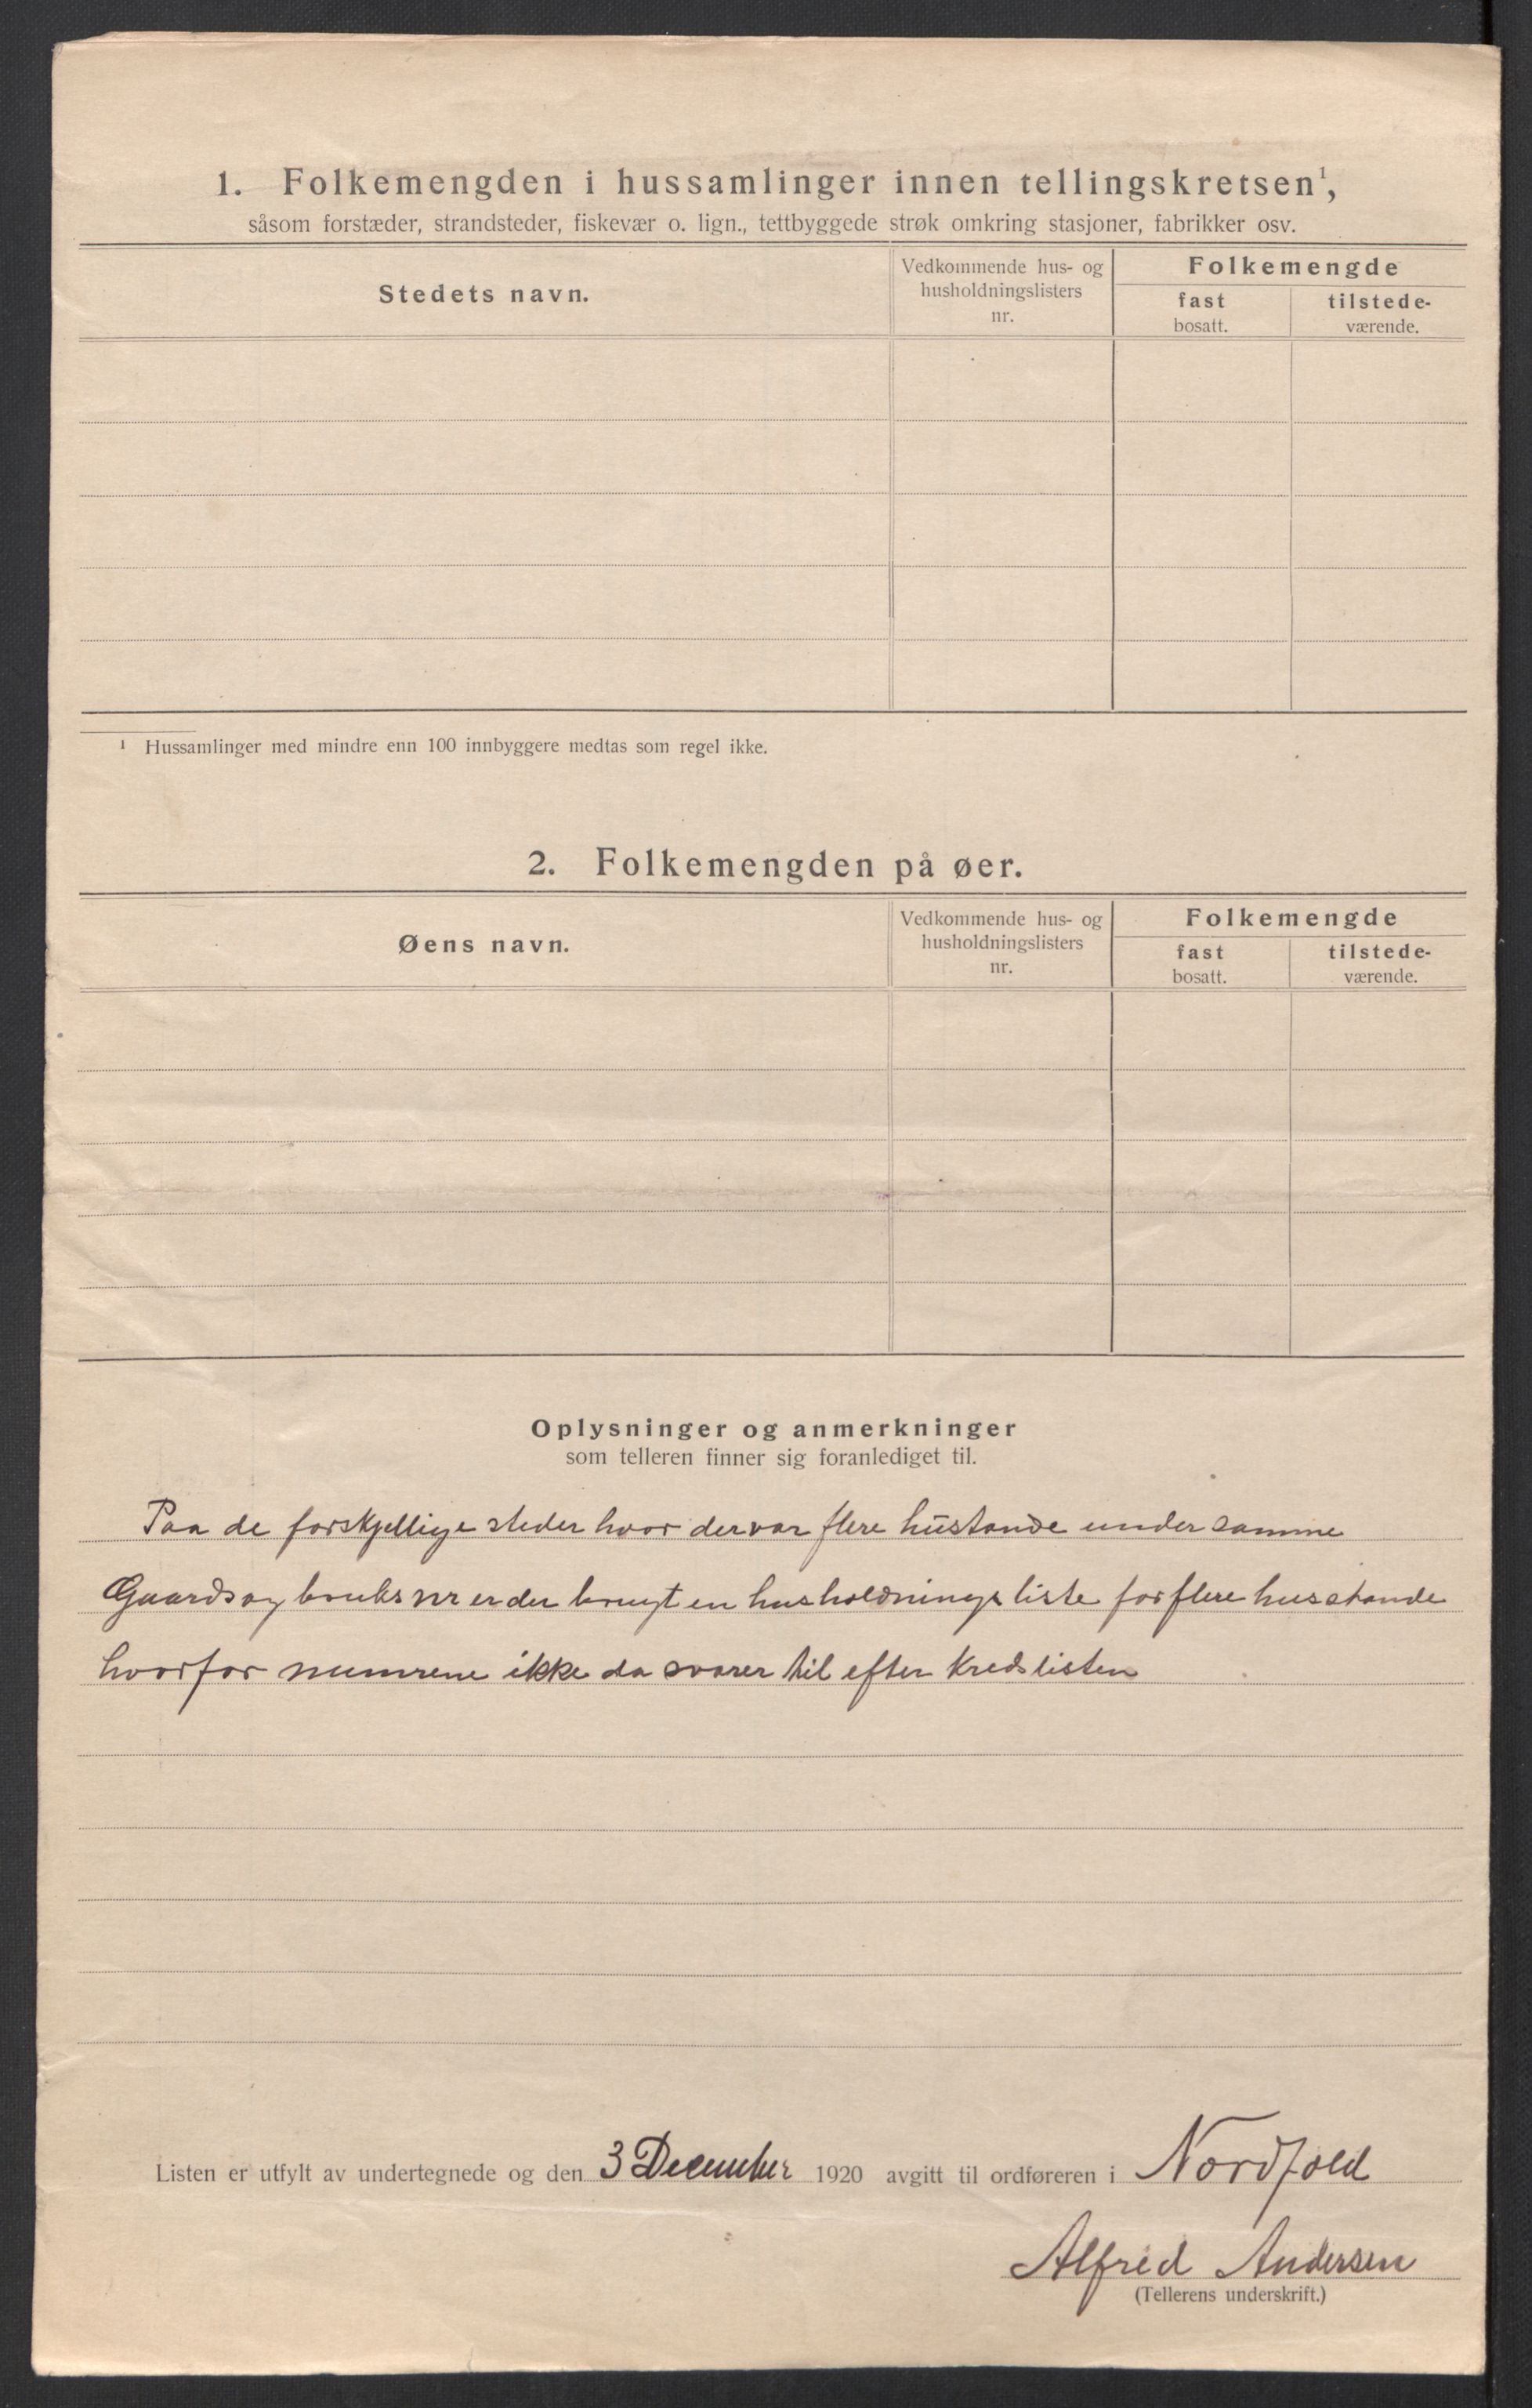 1. Folkemengden i hussamlinger innen tellingskretsen¹,
såsom forstæder, strandsteder, fiskevær o. lign., tettbyggede strøk omkring stasjoner, fabrikker osv.
Stedets navn.
Vedkommende hus- og
husholdningslisters
nr.
Folkemengde
fast
bosatt.
tilstede-
værende.
¹ Hussamlinger med mindre enn 100 innbyggere medtas som regel ikke.
2. Folkemengden på øer.
Øens navn.
Vedkommende hus- og
husholdningslisters
nr.
Folkemengde
fast
bosatt.
tilstede-
værende.
Oplysninger og anmerkninger
som telleren finner sig foranlediget til.
Paa de forskjellige steder hvor der var flere hustande under samme
Gaards og bruks nr er der brugt en husholdnings liste for flere husstande
hvorfor numrene ikke da svarer til efter Kredslisten
Listen er utfylt av undertegnede og den 3 December 1920 avgitt til ordføreren i Nordfold
Alfred Andersen
(Tellerens underskrift.)